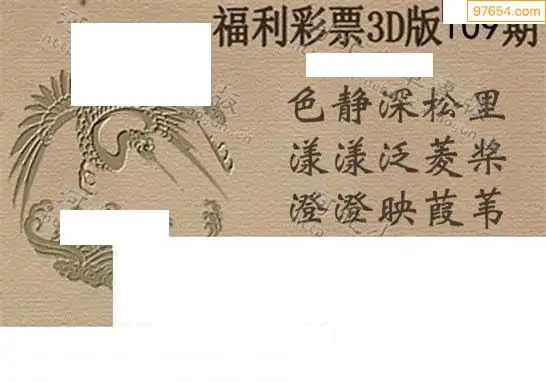 97654.com
福利彩票3D版109期
色静深松里
漾漾泛菱桨
澄澄映葭苇